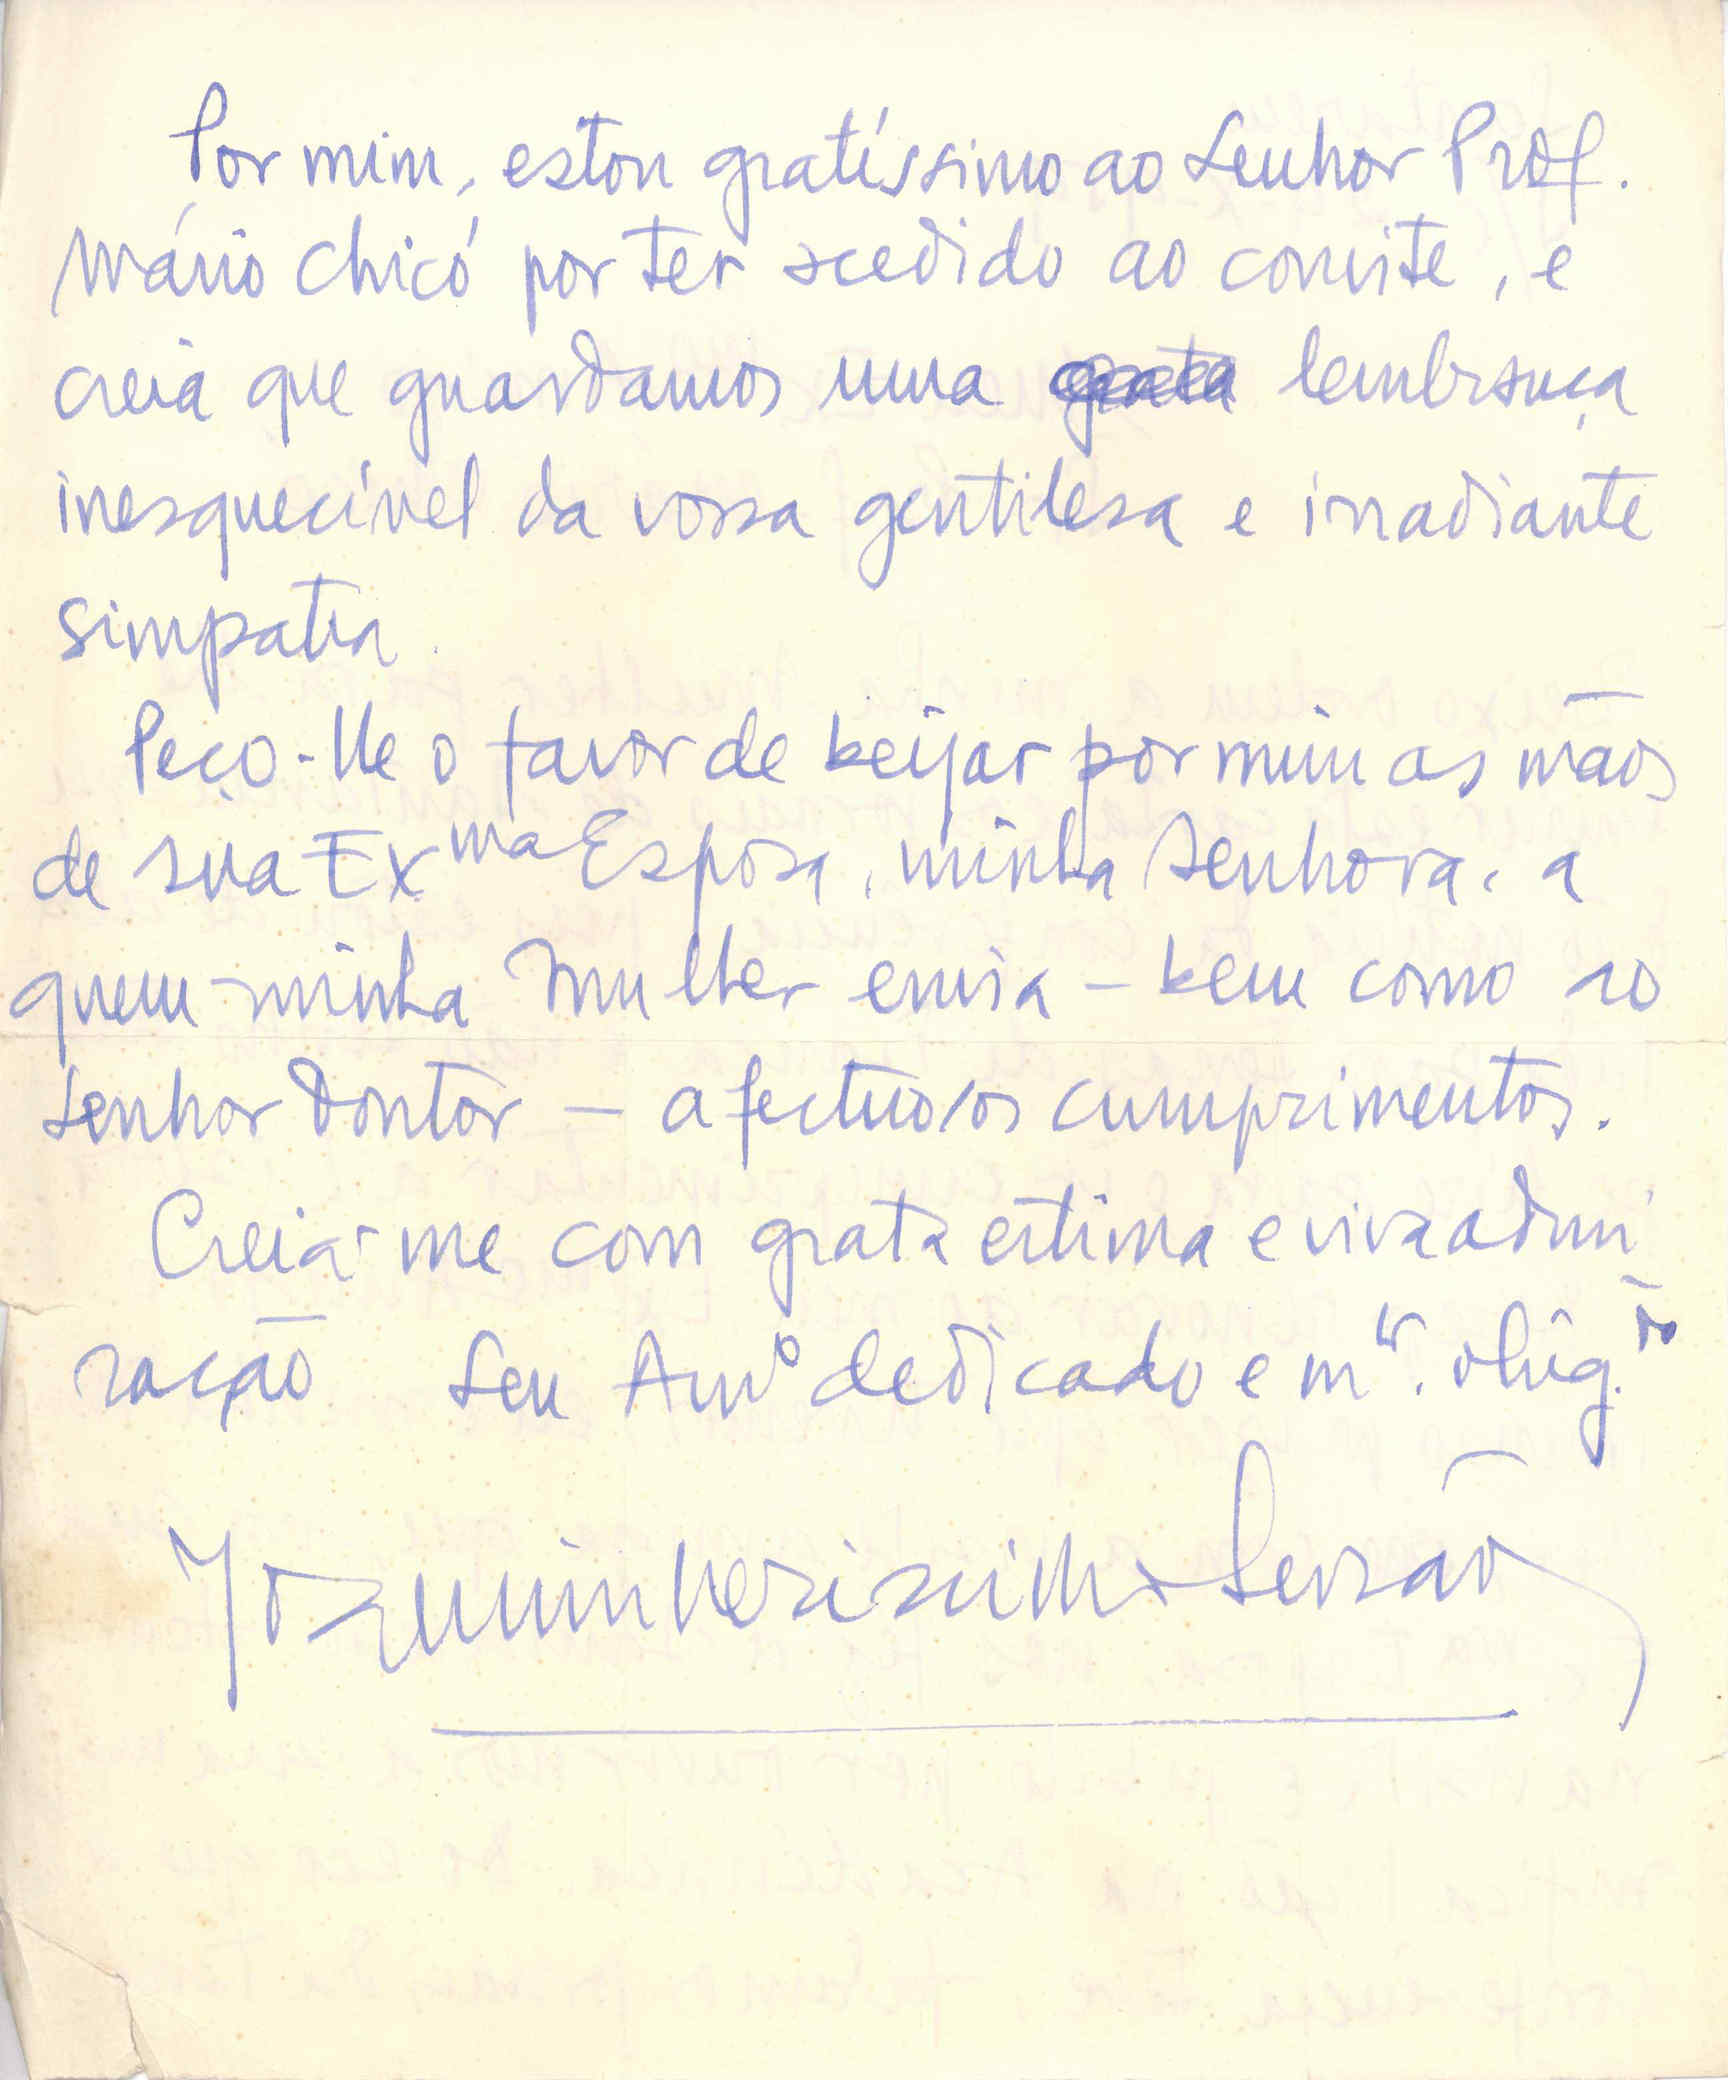 Por mim, estou gratíssimo ao Senhor Prof.
Mário Chicó por ter acedido ao convite, e
creia que guardamos uma grata lembrança
inesquecível da vossa gentilesa e irradiante
simpatia.
Peço-lhe o favor de beijar por mim as mãos
de sua Exma Esposa, minha Senhora, a
quem minha Mulher envia – bem como ao
Senhor Doutor – afectuosos cumprimentos.
Creia-me com grata estima e viva admi
ração Seu Amº dedicado e mto. obrig.do
Joaquim Veríssimo Serrão